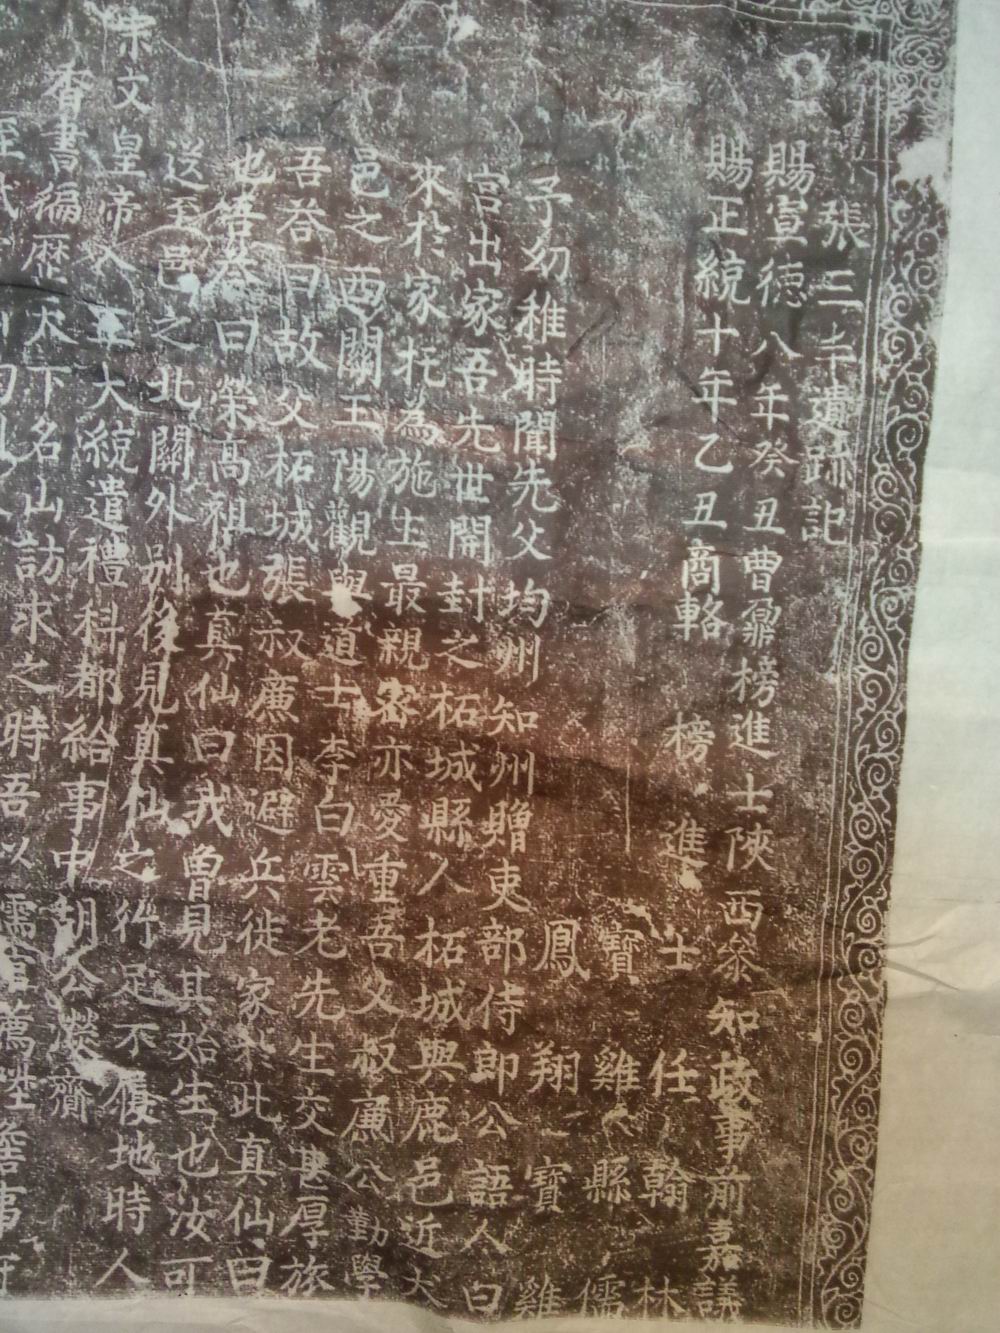 張三丰遺跡記
賜宣德八年癸丑曹鼐榜進士陝西參知政事前嘉議
賜正統十年乙丑商輅榜進士任翰林
寶雞縣儒
鳳翔寶雞
予幼稚時聞先父均州知州贈吏部侍郎公語人曰
官出家吾先世開封之柘城縣人柘城與鹿邑近天
來於家托為施生最親密亦愛重吾父叔廉公勤學
邑之西關玉陽觀與道士李白雲老先生交甚厚旅
吾答曰故父柘城張叔廉因避兵徙家於此真仙曰
也答曰榮高祖也真仙曰我曾見其始生也汝可
送至邑之北關外別後見真仙之行足不履地時人
宋文皇帝入正大統遣禮科都給事中胡公濙齎
香書徧歷天下名山訪求之時吾以儒官薦